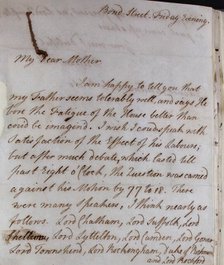 Bond Street. Friday Evening.
My Dear Mother
I am happy to tell you that
my Father seems tolerably well, and says He
bore the Fatigue of the House better than
could be imagined. I wish I could speak with
Satisfaction of the Effect of his Labours;
but after much debate, which lasted till
past Eight o'Clock, the Question was carried
against his Motion by 77 to 18. There
were many Speakers, I think nearly as
follows. Lord Chatham, Lord Suffolk, Lord
Shelburne, Lord Lyttelton, Lord Camden, Lord Gower
Lord Townshend, Lord Rockingham, Duke of Richmond
and Lord Rochford